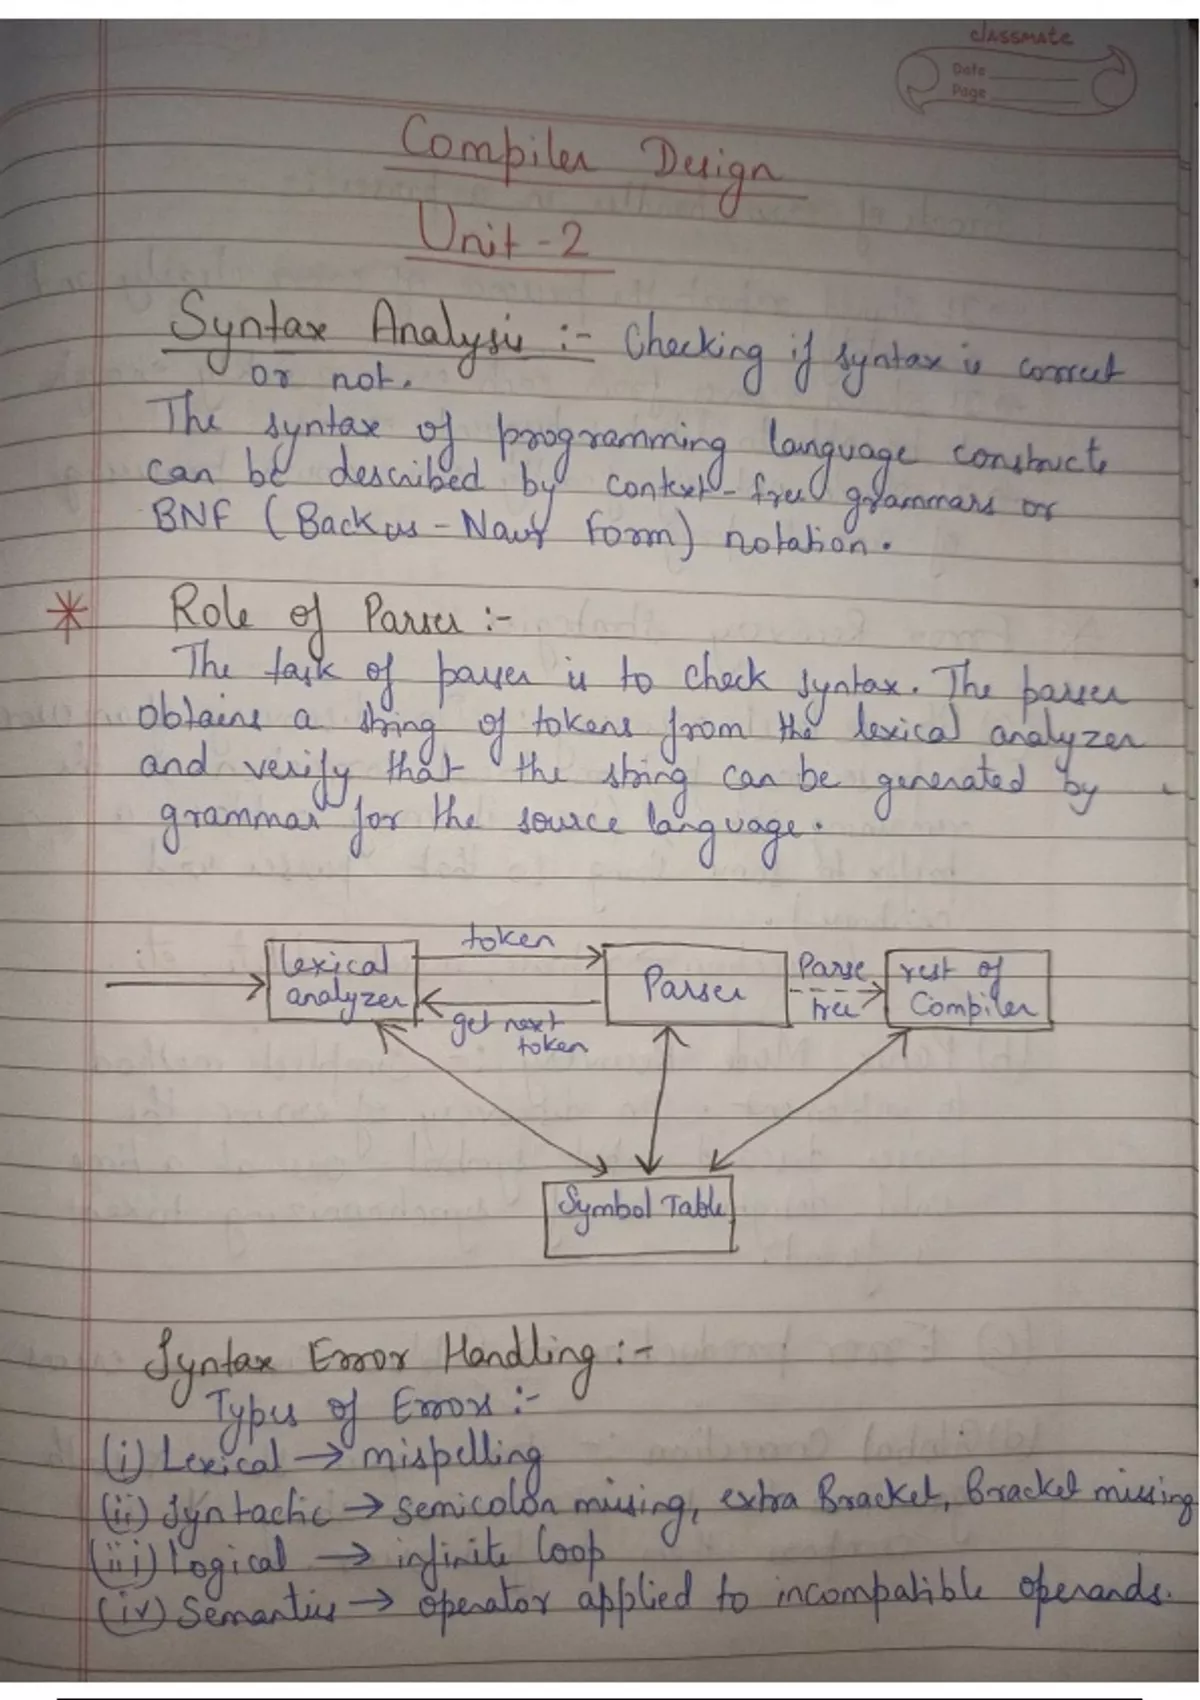 classmate
Date
Page
Compiler Design
Unit-2
Syntax Analysis :- Checking if syntax is correct
or not.
The syntax of programming language constructs
can be described by context-free grammars or
BNF (Backus-Naur Form) notation.
* Role of Parser :-
The task of parser is to check syntax. The parser
obtains a string of tokens from the lexical analyzer
and verify that the string can be generated by
grammar for the source language.
token
lexical
analyzer
Parser
Parse
tree
rest of
Compiler
get next
token
Symbol Table
Syntax Error Handling :-
Types of Errors :-
(i) Lexical → mispelling
(ii) Syntactic → semicolon missing, extra Bracket, Bracket missing
(iii) Logical → infinite loop
(iv) Semantics → operator applied to incompatible operands.